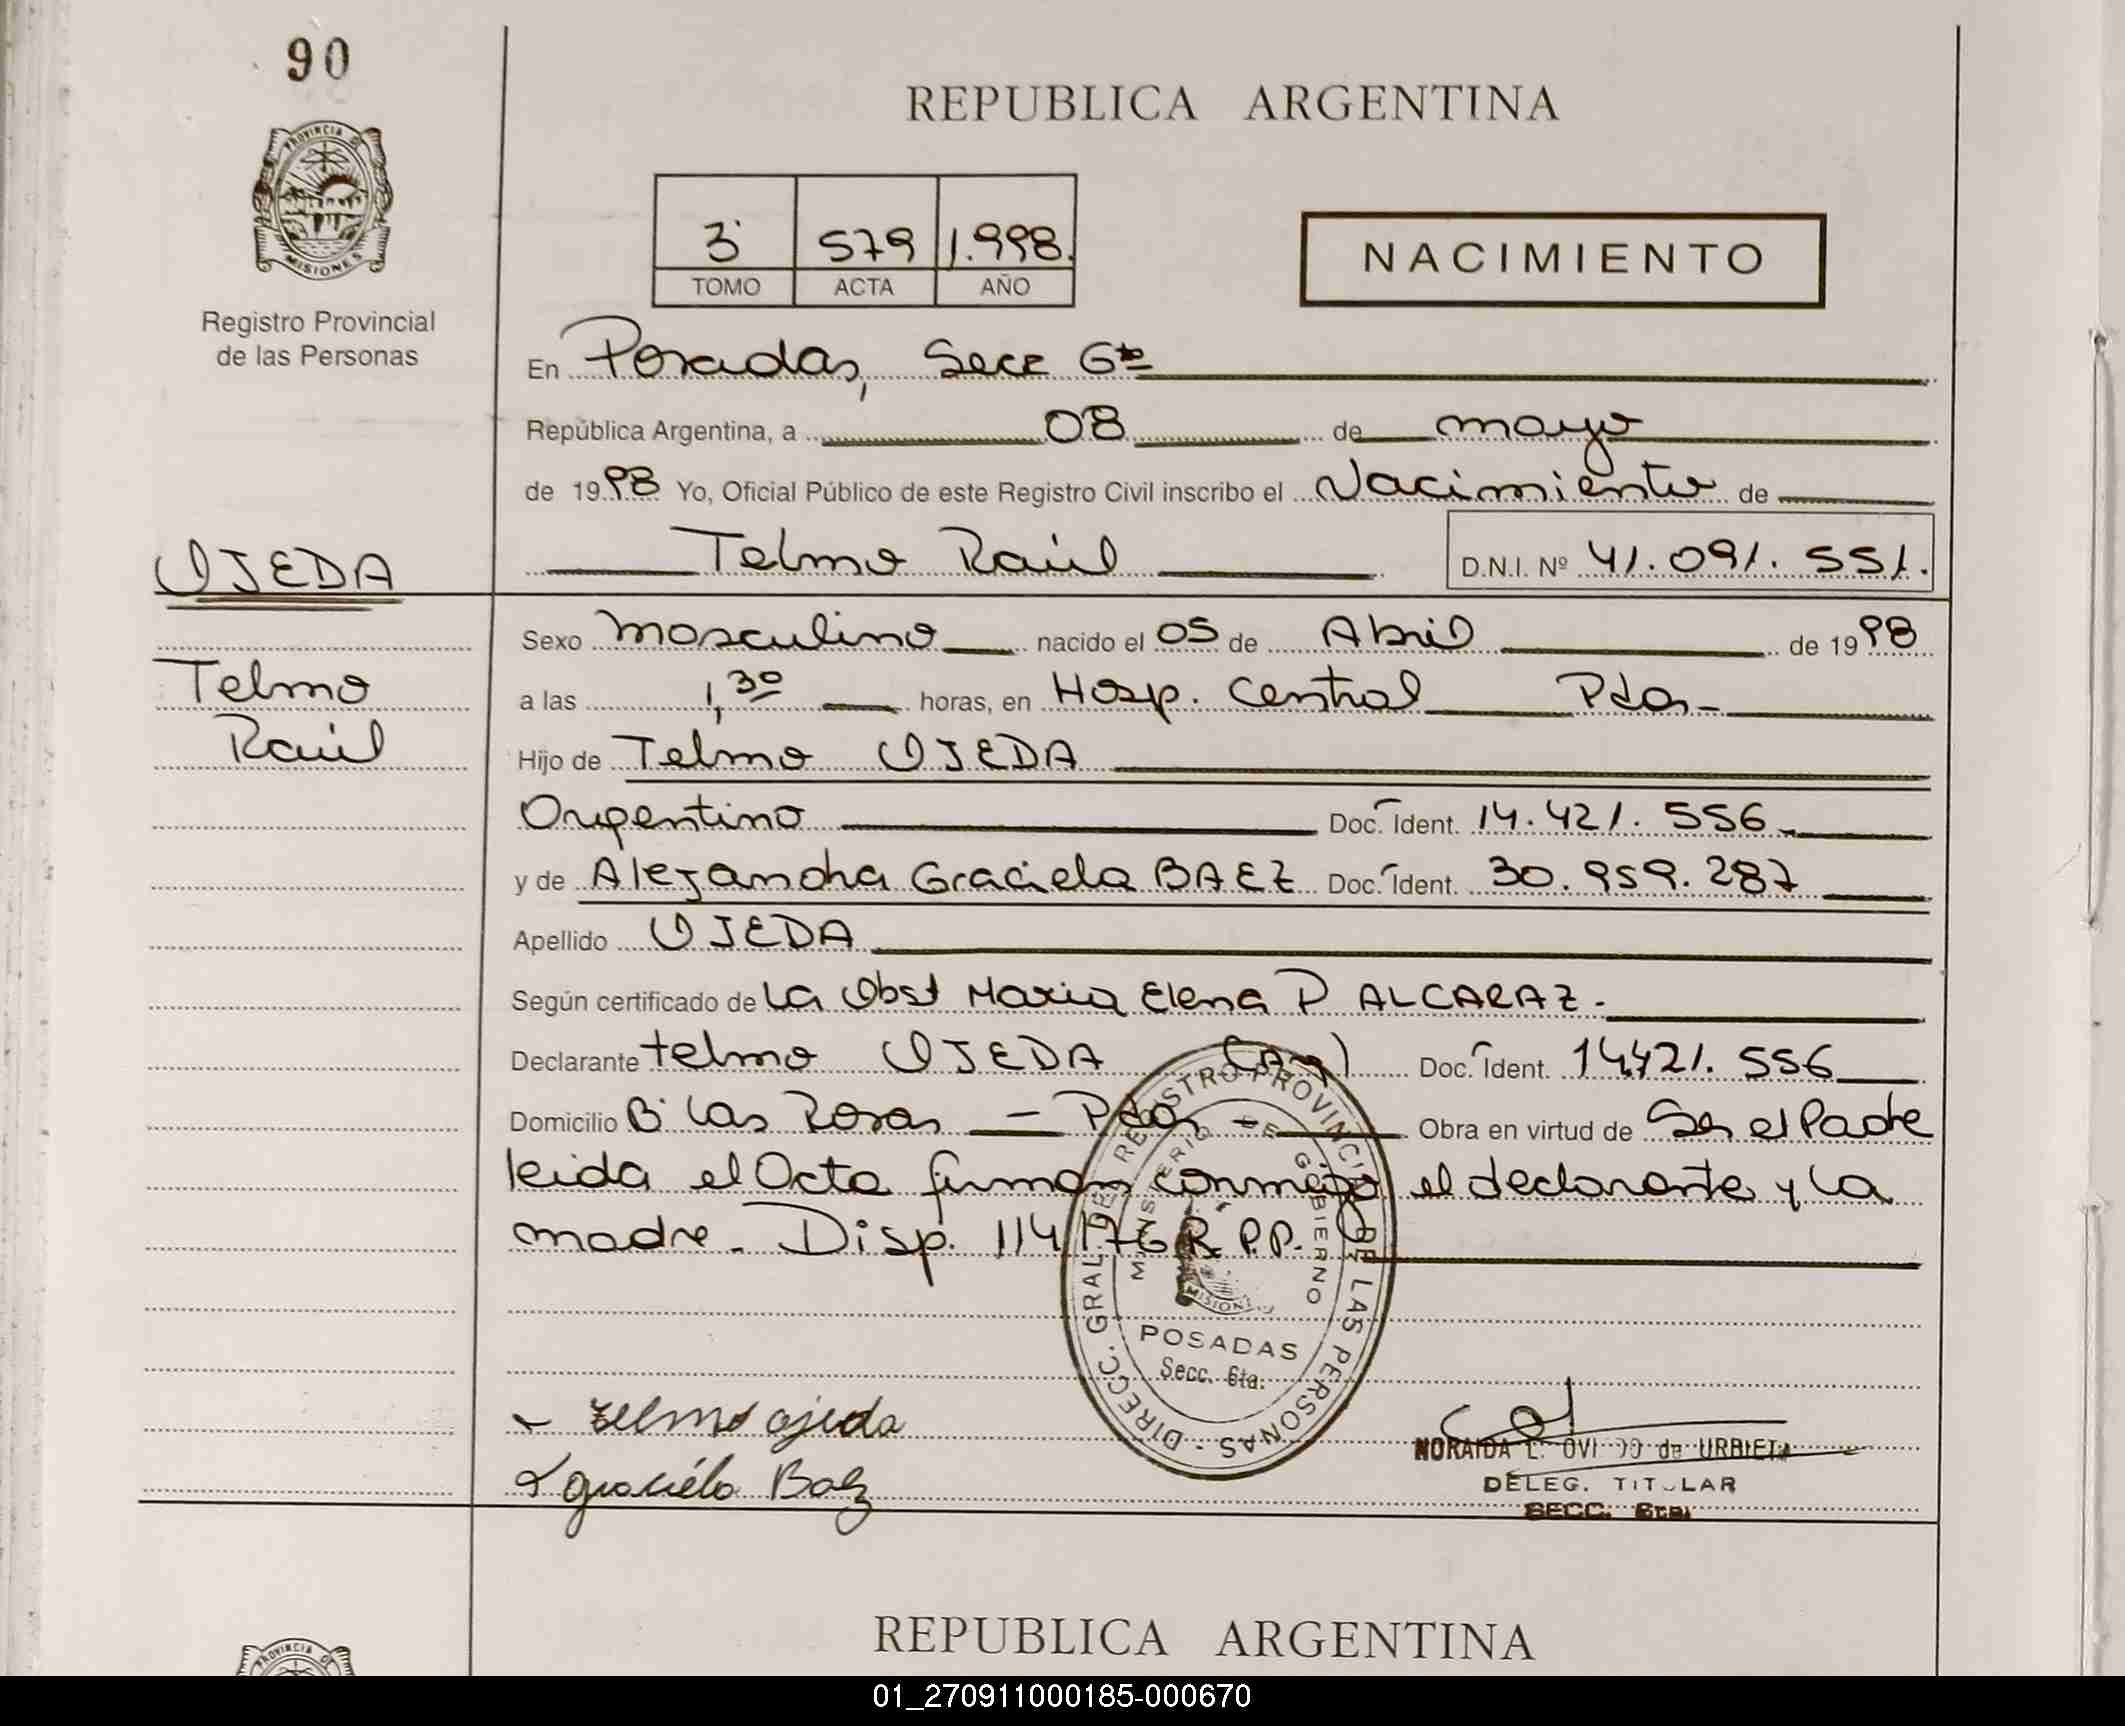 90
REPUBLICA ARGENTINA
PROVINCIA DE
MISIONES
3 579 1.998.
TOMO ACTA AÑO
NACIMIENTO
Registro Provincial
de las Personas
En Posadas, Secc 6ta
República Argentina, a 08 de mayo
de 1998 Yo, Oficial Público de este Registro Civil inscribo el Nacimiento de
OJEDA
Telmo Raúl D.N.I. Nº 41.091.551.
Sexo masculino nacido el 05 de Abril de 1998
Telmo
a las 1,30 horas, en Hosp. Central Pdas-
Raúl
Hijo de Telmo OJEDA
Argentino Doc. Ident. 14.421.556
y de Alejandra Graciela BAEZ Doc. Ident. 30.959.287
Apellido OJEDA
Según certificado de La Obst Maria Elena P ALCARAZ.
Declarante telmo OJEDA (Arg) Doc. Ident. 14.421.556
Domicilio Bº Las Rosas — Pdas - Obra en virtud de Ser el Padre
leida el Acta firman conmigo el declarante y la
madre. Disp. 114/76 R.P.P.
DIRECC. GRAL. DEL REGISTRO PROVINCIAL DE LAS PERSONAS -
MINISTERIO DE GOBIERNO
MISIONES
POSADAS
Secc. 6ta.
telmo ojeda
graciela Baez
NORAIDA L. OVIEDO de URBIETA
DELEG. TITULAR
SECC. 6ta.
REPUBLICA ARGENTINA
PROVINCIA DE
01_270911000185-000670